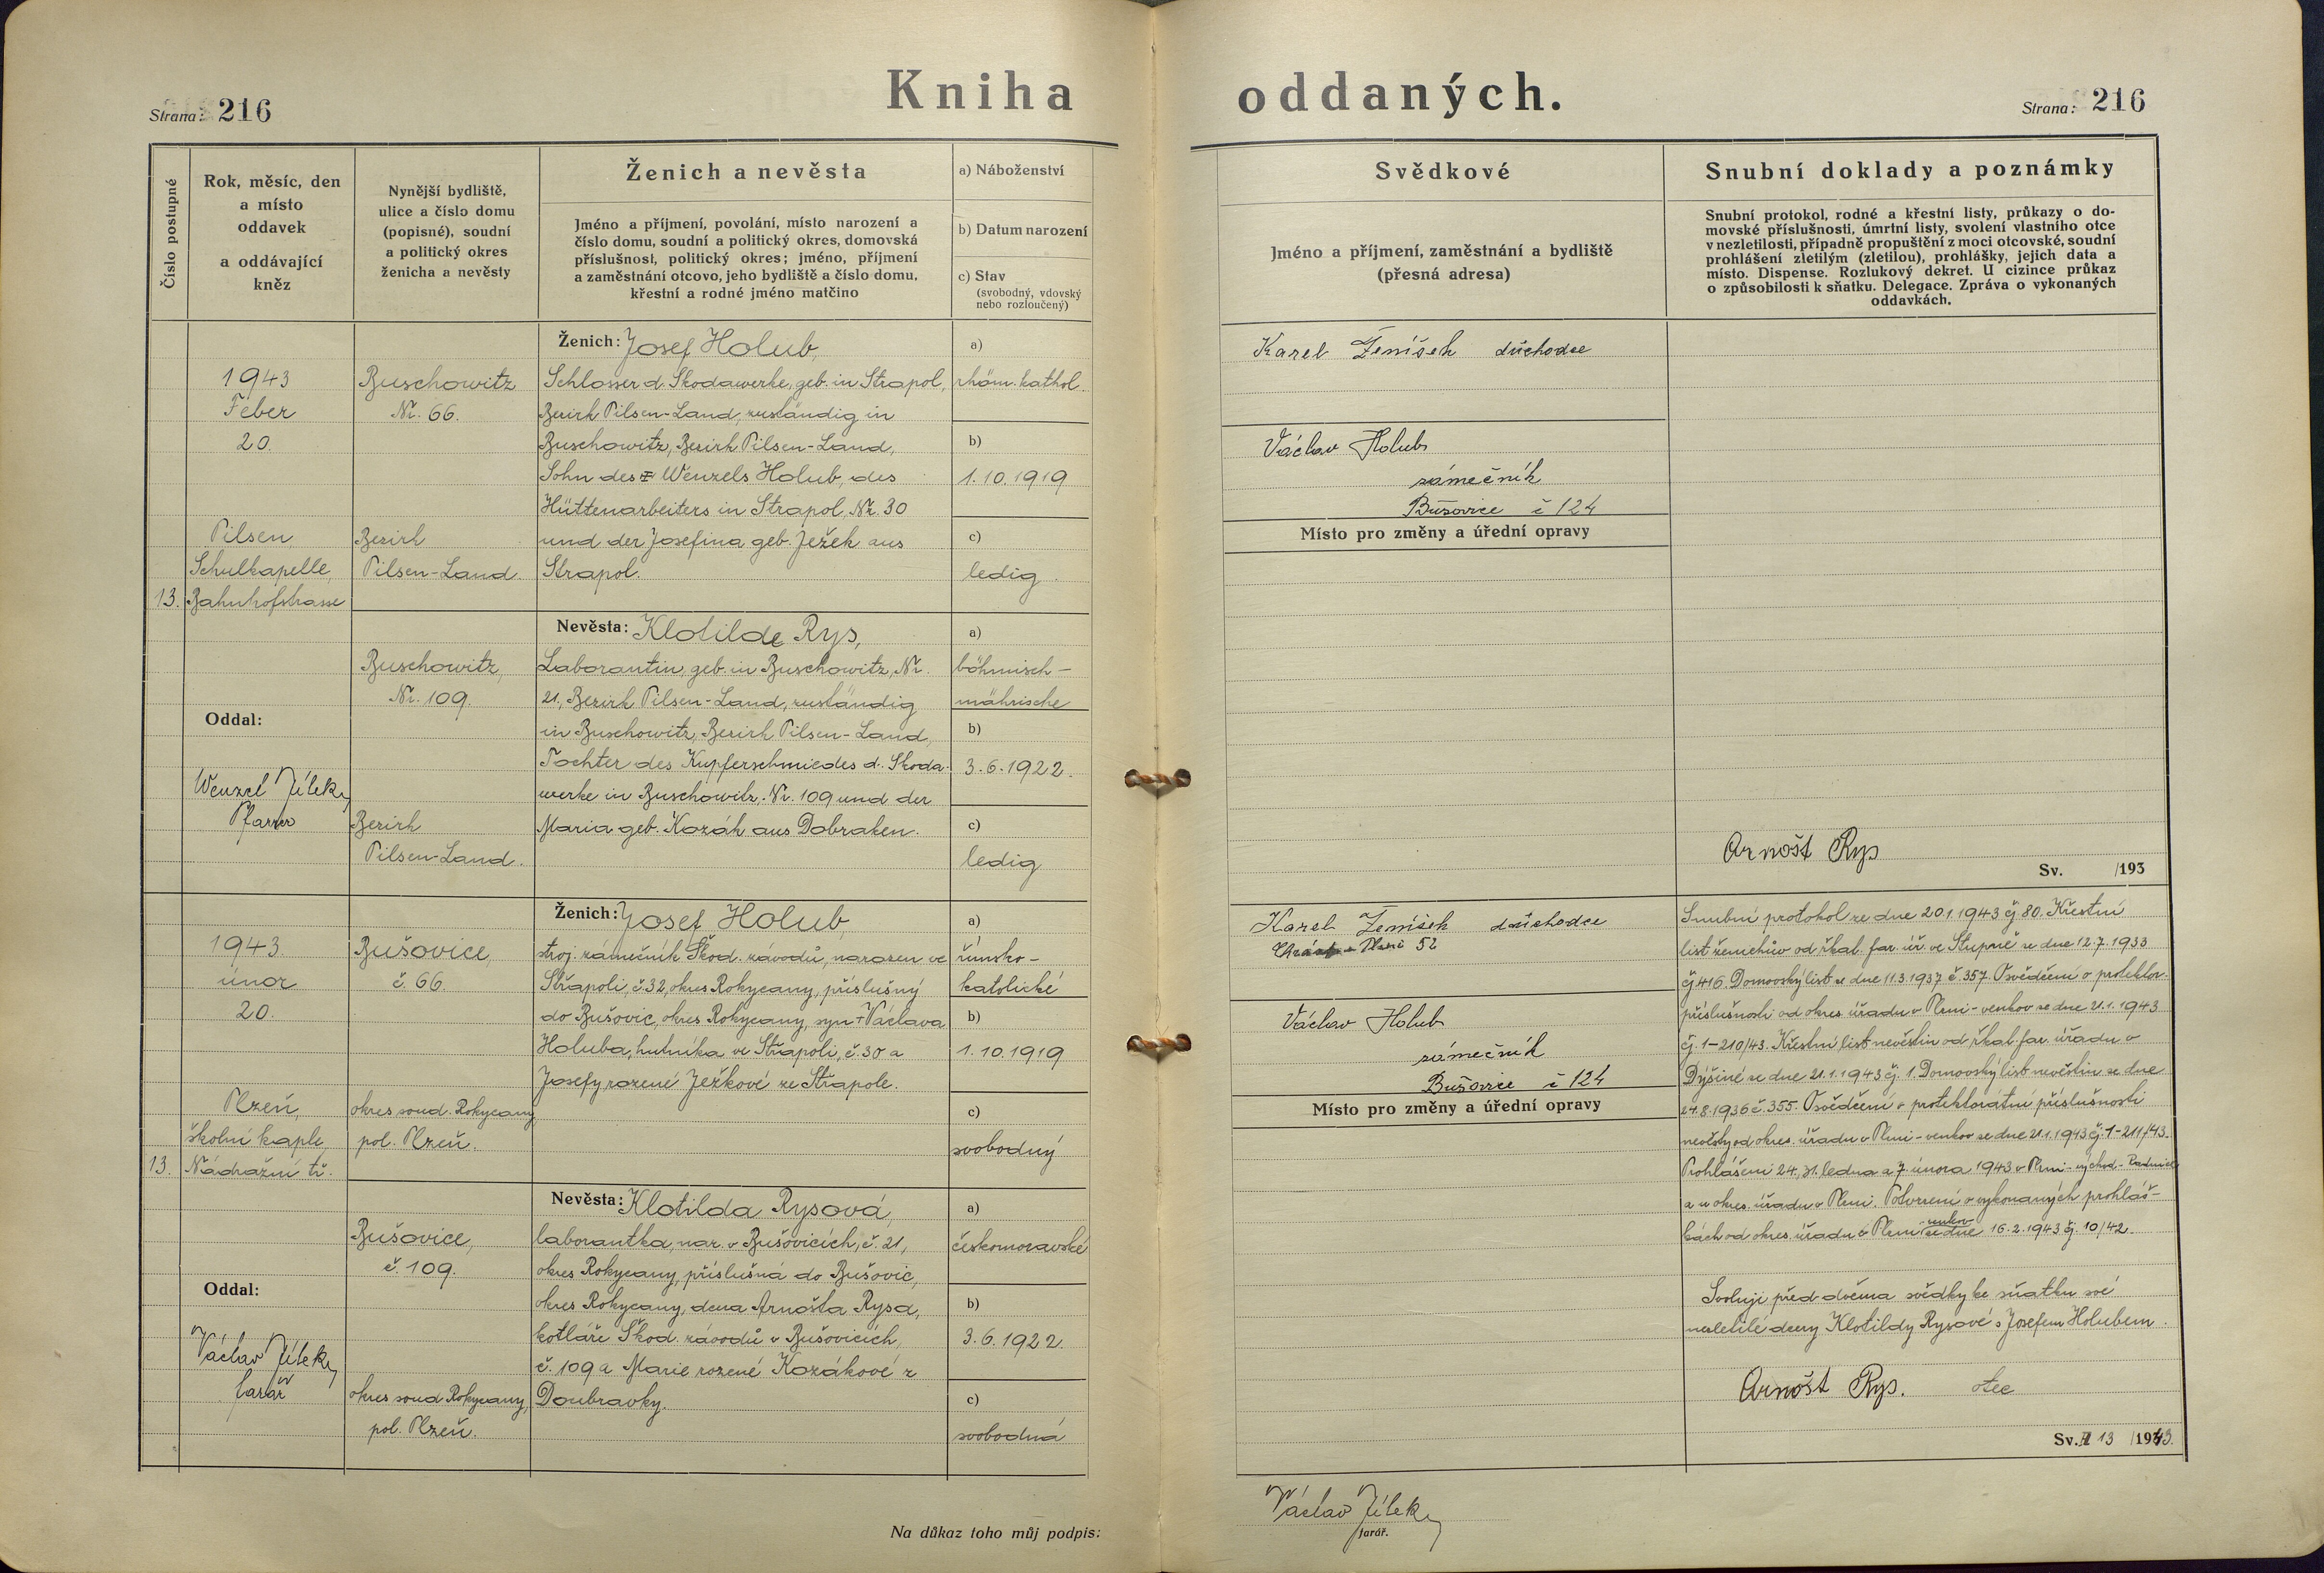 Kniha oddaných.
Strana: 216
Strana: 216
Číslo postupné
Rok, měsíc, den
a místo
oddavek
a oddávající
kněz
Nynější bydliště,
ulice a číslo domu
(popisné), soudní
a politický okres
ženicha a nevěsty
Ženich a nevěsta
Jméno a příjmení, povolání, místo narození a
číslo domu, soudní a politický okres, domovská
příslušnost, politický okres; jméno, příjmení
a zaměstnání otcovo, jeho bydliště a číslo domu,
křestní a rodné jméno matčino
a) Náboženství
b) Datum narození
c) Stav
(svobodný, vdovský
nebo rozloučený)
Svědkové
Jméno a příjmení, zaměstnání a bydliště
(přesná adresa)
Snubní doklady a poznámky
Snubní protokol, rodné a křestní listy, průkazy o do-
movské příslušnosti, úmrtní listy, svolení vlastního otce
v nezletilosti, případně propuštění z moci otcovské, soudní
prohlášení zletilým (zletilou), prohlášky, jejich data a
místo. Dispense. Rozlukový dekret. U cizince průkaz
o způsobilosti k sňatku. Delegace. Zpráva o vykonaných
oddavkách.
13.
1943
Feber
20.
Pilsen
Schulkapelle,
Bahnhofstrasse
Oddal:
Wenzel Jílek,
Pfarrer
Buschowitz
Nr. 66.
Bezirk
Pilsen-Land.
Ženich: Josef Holub,
Schlosser d. Skodawerke, geb. in Strapol,
Bezirk Pilsen-Land, zuständig in
Buschowitz, Bezirk Pilsen-Land,
Sohn des Wenzels Holub, des
Hüttenarbeiters in Strapol, Nr. 30
und der Josefina geb. Ježek aus
Strapol.
a)
rhöm. kathol.
b)
1.10.1919
c)
ledig.
Buschowitz,
Nr. 109.
Bezirk
Pilsen-Land.
Nevěsta: Klotilde Rys,
Laborantin, geb. in Buschowitz, Nr.
21, Bezirk Pilsen-Land, zuständig
in Buschowitz, Bezirk Pilsen-Land,
Tochter des Kupferschmiedes d. Skoda-
werke in Buschowitz, Nr. 109 und der
Maria geb. Kozák aus Dobraken.
a)
böhmisch-
mährische
b)
3.6.1922.
c)
ledig
Karel Ženíšek důchodce
Václav Holub
zámečník
Bušovice č 124
Místo pro změny a úřední opravy
Arnošt Rys
Sv. /193
13.
1943.
únor
20.
Plzeň
školní kaple,
Nádražní tř.
Oddal:
Václav Jílek,
farář
Bušovice,
č. 66.
okres soud. Rokycany,
pol. Plzeň.
Ženich: Josef Holub,
stroj. zámečník Škod. závodů, narozen ve
Střapoli, č. 32, okres Rokycany, příslušný
do Bušovic, okres Rokycany, syn + Václava
Holuba, hutníka ve Střapoli, č. 30 a
Josefy rozené Ježkové ze Střapole.
a)
římsko-
katolické
b)
1.10.1919
c)
svobodný
Bušovice,
č. 109.
okres soud Rokycany,
pol. Plzeň.
Nevěsta: Klotilda Rysová,
laborantka, nar. v Bušovicích, č. 21,
okres Rokycany, příslušná do Bušovic,
okres Rokycany, dcera Arnošta Rysa,
kotláře Škod. závodů v Bušovicích,
č. 109 a Marie rozené Kozákové z
Doubravky.
a)
českomoravské
b)
3.6.1922.
c)
svobodná
Karel Ženíšek důchodce
52
Václav Holub
zámečník
Bušovice č 124
Místo pro změny a úřední opravy
Snubní protokol ze dne 20.1.1943 čj. 80. Křestní
list ženichův od řkat. far. úř. ve Stupně ze dne 12.7.1933
čj 416. Domovský list ze dne 11.3.1937 č. 357. Osvědčení o protektor.
příslušnosti od okres. úřadu v Plzni-venkov ze dne 21.1.1943
čj. 1-210/43. Křestní list nevěstin od řkat. far. úřadu v
Dýšině ze dne 21.1.1943 čj. 1. Domovský list nevěstin ze dne
24.8.1936 č. 355. Osvědčení o protektorátní příslušnosti
nevěsty od okres. úřadu v Plzni-venkov ze dne 21.1.1943 čj. 1-211/43.
Prohlášení 24., 31. ledna a 7. února 1943 v Plzni-východ-
a u okres. úřadu v Plzni. Potvrzení o vykonaných prohláš-
kách od okres. úřadu v Plzni-venkov ze dne 16.2.1943 čj. 10/42.
Svoluji před dvěma svědky ke sňatku své
nezletilé dcery Klotildy Rysové s Josefem Holubem.
Arnošt Rys. otec
Sv. 13 /1943.
Na důkaz toho můj podpis:
Václav Jílek,
farář.